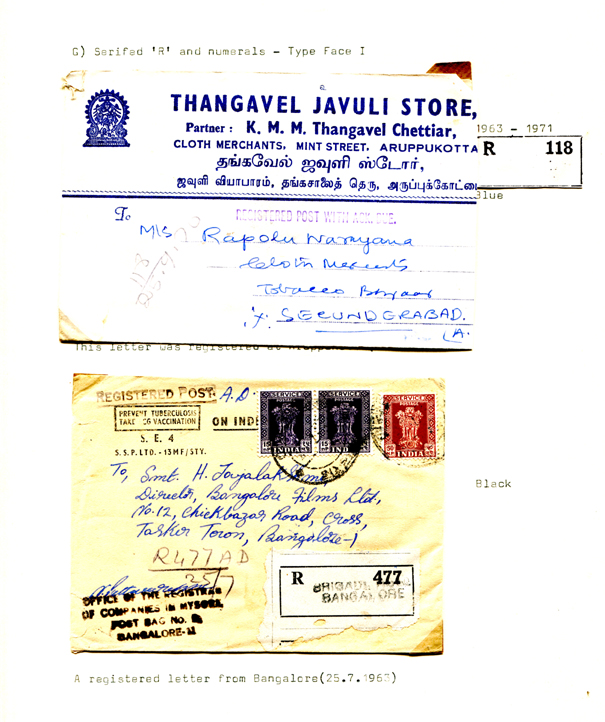 G) Serifed 'R' and numerals - Type Face I
THANGAVEL JAVULI STORE,
Partner : K. M. M. Thangavel Chettiar,
CLOTH MERCHANTS, MINT STREET, ARUPPUKOTTA
தங்கவேல் ஜவுளி ஸ்டோர்,
ஜவுளி வியாபாரம், தங்கசாலைத் தெரு, அருப்புக்கோட்டை
1963 - 1971
R 118
Blue
To
REGISTERED POST WITH ACK. DUE.
M/s Rapolu Narayana
Cloth Merchants
Tobacco Bazaar
SECUNDERABAD.
(A.
This letter was registered at
REGISTERED POST. A.D.
PREVENT TUBERCULOSIS
TAKE BCG VACCINATION
ON INDI
S. E. 4
S. S. P. LTD. -13MF/STY.
SERVICE
POSTAGE
INDIA
SERVICE
POSTAGE
INDIA
SERVICE
POSTAGE
INDIA
To, Smt. H. Jayalakshmi,
Director, Bangalore Films Ltd,
No.12, Chickbazar Road, Cross,
Tasker Town, Bangalore-1
Black
R477AD
25/7
R 477
BRIGADE
BANGALORE
OFFICE OF THE REGISTRAR
OF COMPANIES IN MYSORE,
POST BAG NO.
BANGALORE-
A registered letter from Bangalore(25.7.1963)